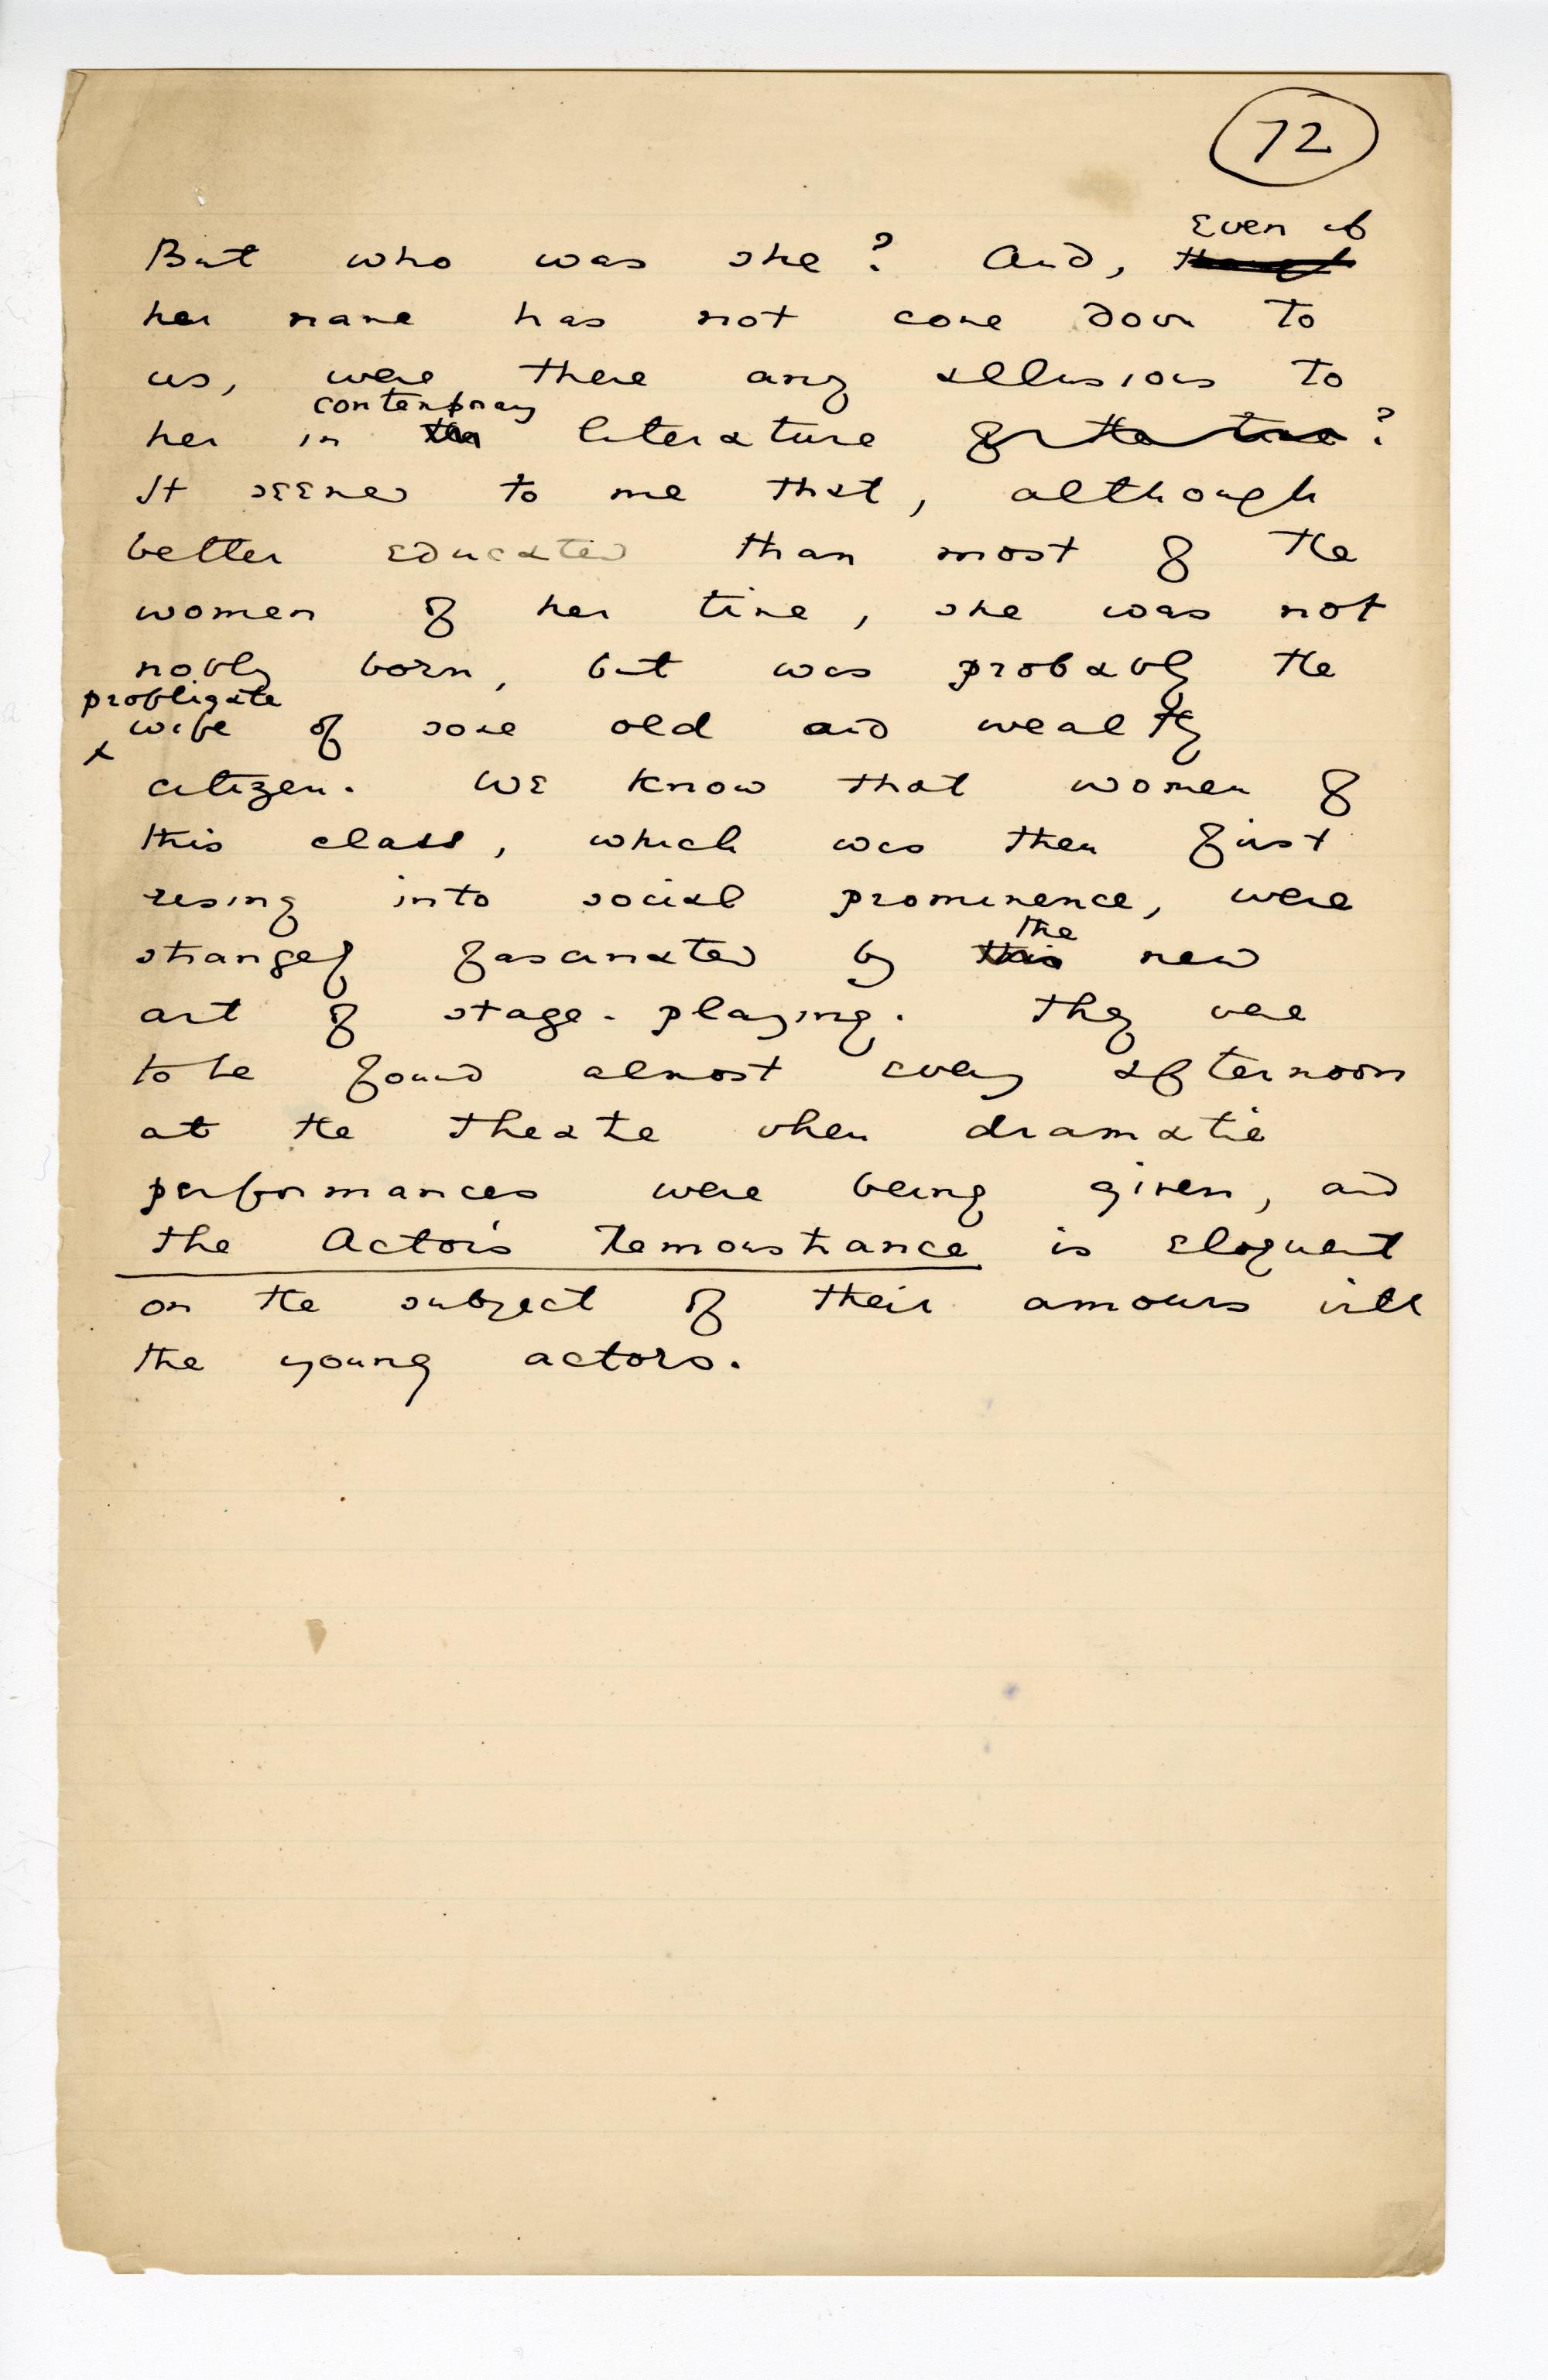 72
Even if
But who was she? And, though
her name has not come down to
us, were there any allusions to
contemporary
her in the literature of the time?
It seemed to me that, although
better educated than most of the
women of her time, she was not
nobly born, but was probably the
profligate
wife of some old and wealthy
citizen. We know that women of
this class, which was then first
rising into social prominence, were
the
strangely fascinated by this new
art of stage-playing. They were
to be found almost every afternoon
at the theatre when dramatic
performances were being given, and
The Actor's Remonstrance is eloquent
on the subject of their amours with
the young actors.